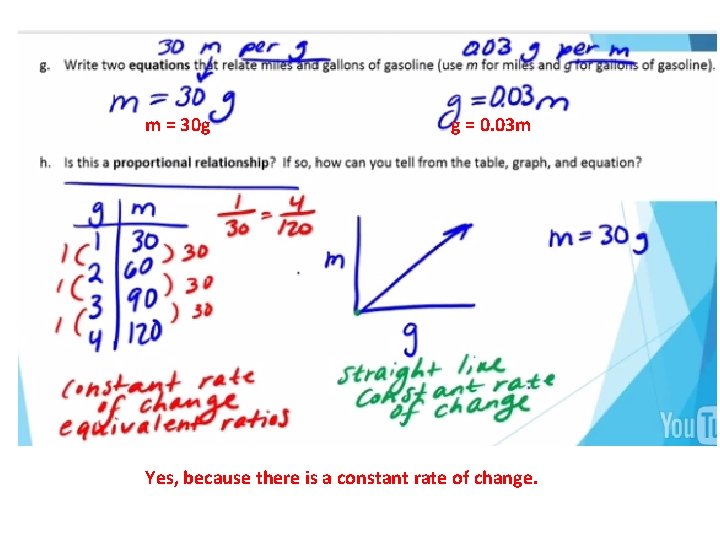 30 m per g 0.03 g per m
g. Write two equations that relate miles and gallons of gasoline (use m for miles and g for gallons of gasoline).
m = 30 g g = 0.03 m
m = 30g g = 0.03m
h. Is this a proportional relationship? If so, how can you tell from the table, graph, and equation?
g m 1/30 = 4/120
1 ( 1 30 ) 30 m = 30 g
1 ( 2 60 ) 30 m
1 ( 3 90 ) 30
4 120 g
Constant rate of change
equivalent ratios
straight line
constant rate
of change
YouTu
Yes, because there is a constant rate of change.